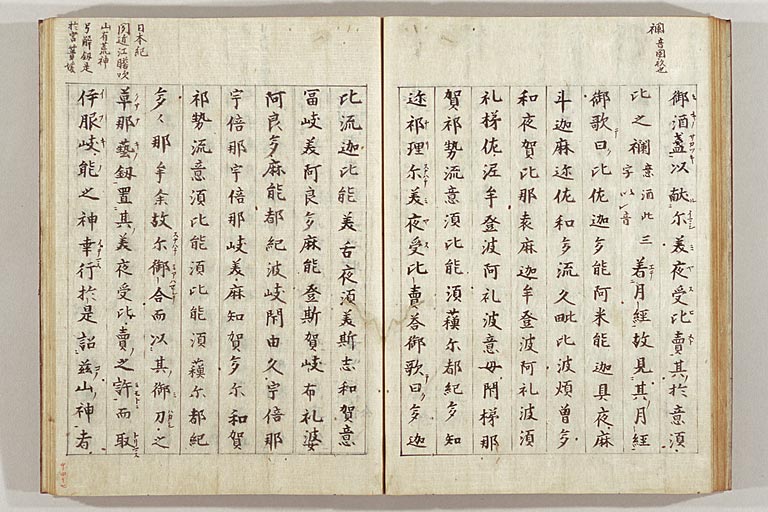 襴 音図救也
御酒盞以献尓美夜受比賣其於意湏
比之襴 意湏比三字以音 著月經故見其月經
御歌曰比佐迦多能阿米能迦具夜麻
斗迦麻迩佐和多流久毗比波煩曽多
和夜賀比那袁麻迦牟登波阿礼波湏
礼梯佐泥牟登波阿礼波意母閇梯那
賀祁勢流意湏比能湏蘓尓都紀多知
迩祁理尓美夜受比賣荅御歌曰多迦
比流迦比能美古夜湏美斯志和賀意
冨岐美阿良多麻能登斯賀岐布礼婆
阿良多麻能都紀波岐閇由久宇倍那
宇倍那宇倍那岐美麻知賀多尓和賀
祁勢流意湏比能湏比能湏蘓尓都紀
多々那牟余故尓御合而以其御刀之
草那藝釼置其美夜受比賣之許而取
伊服岐能之神幸行於是詔兹山神者
日本紀
聞近江膽吹
山有荒神
号解釼是
於宮簀媛